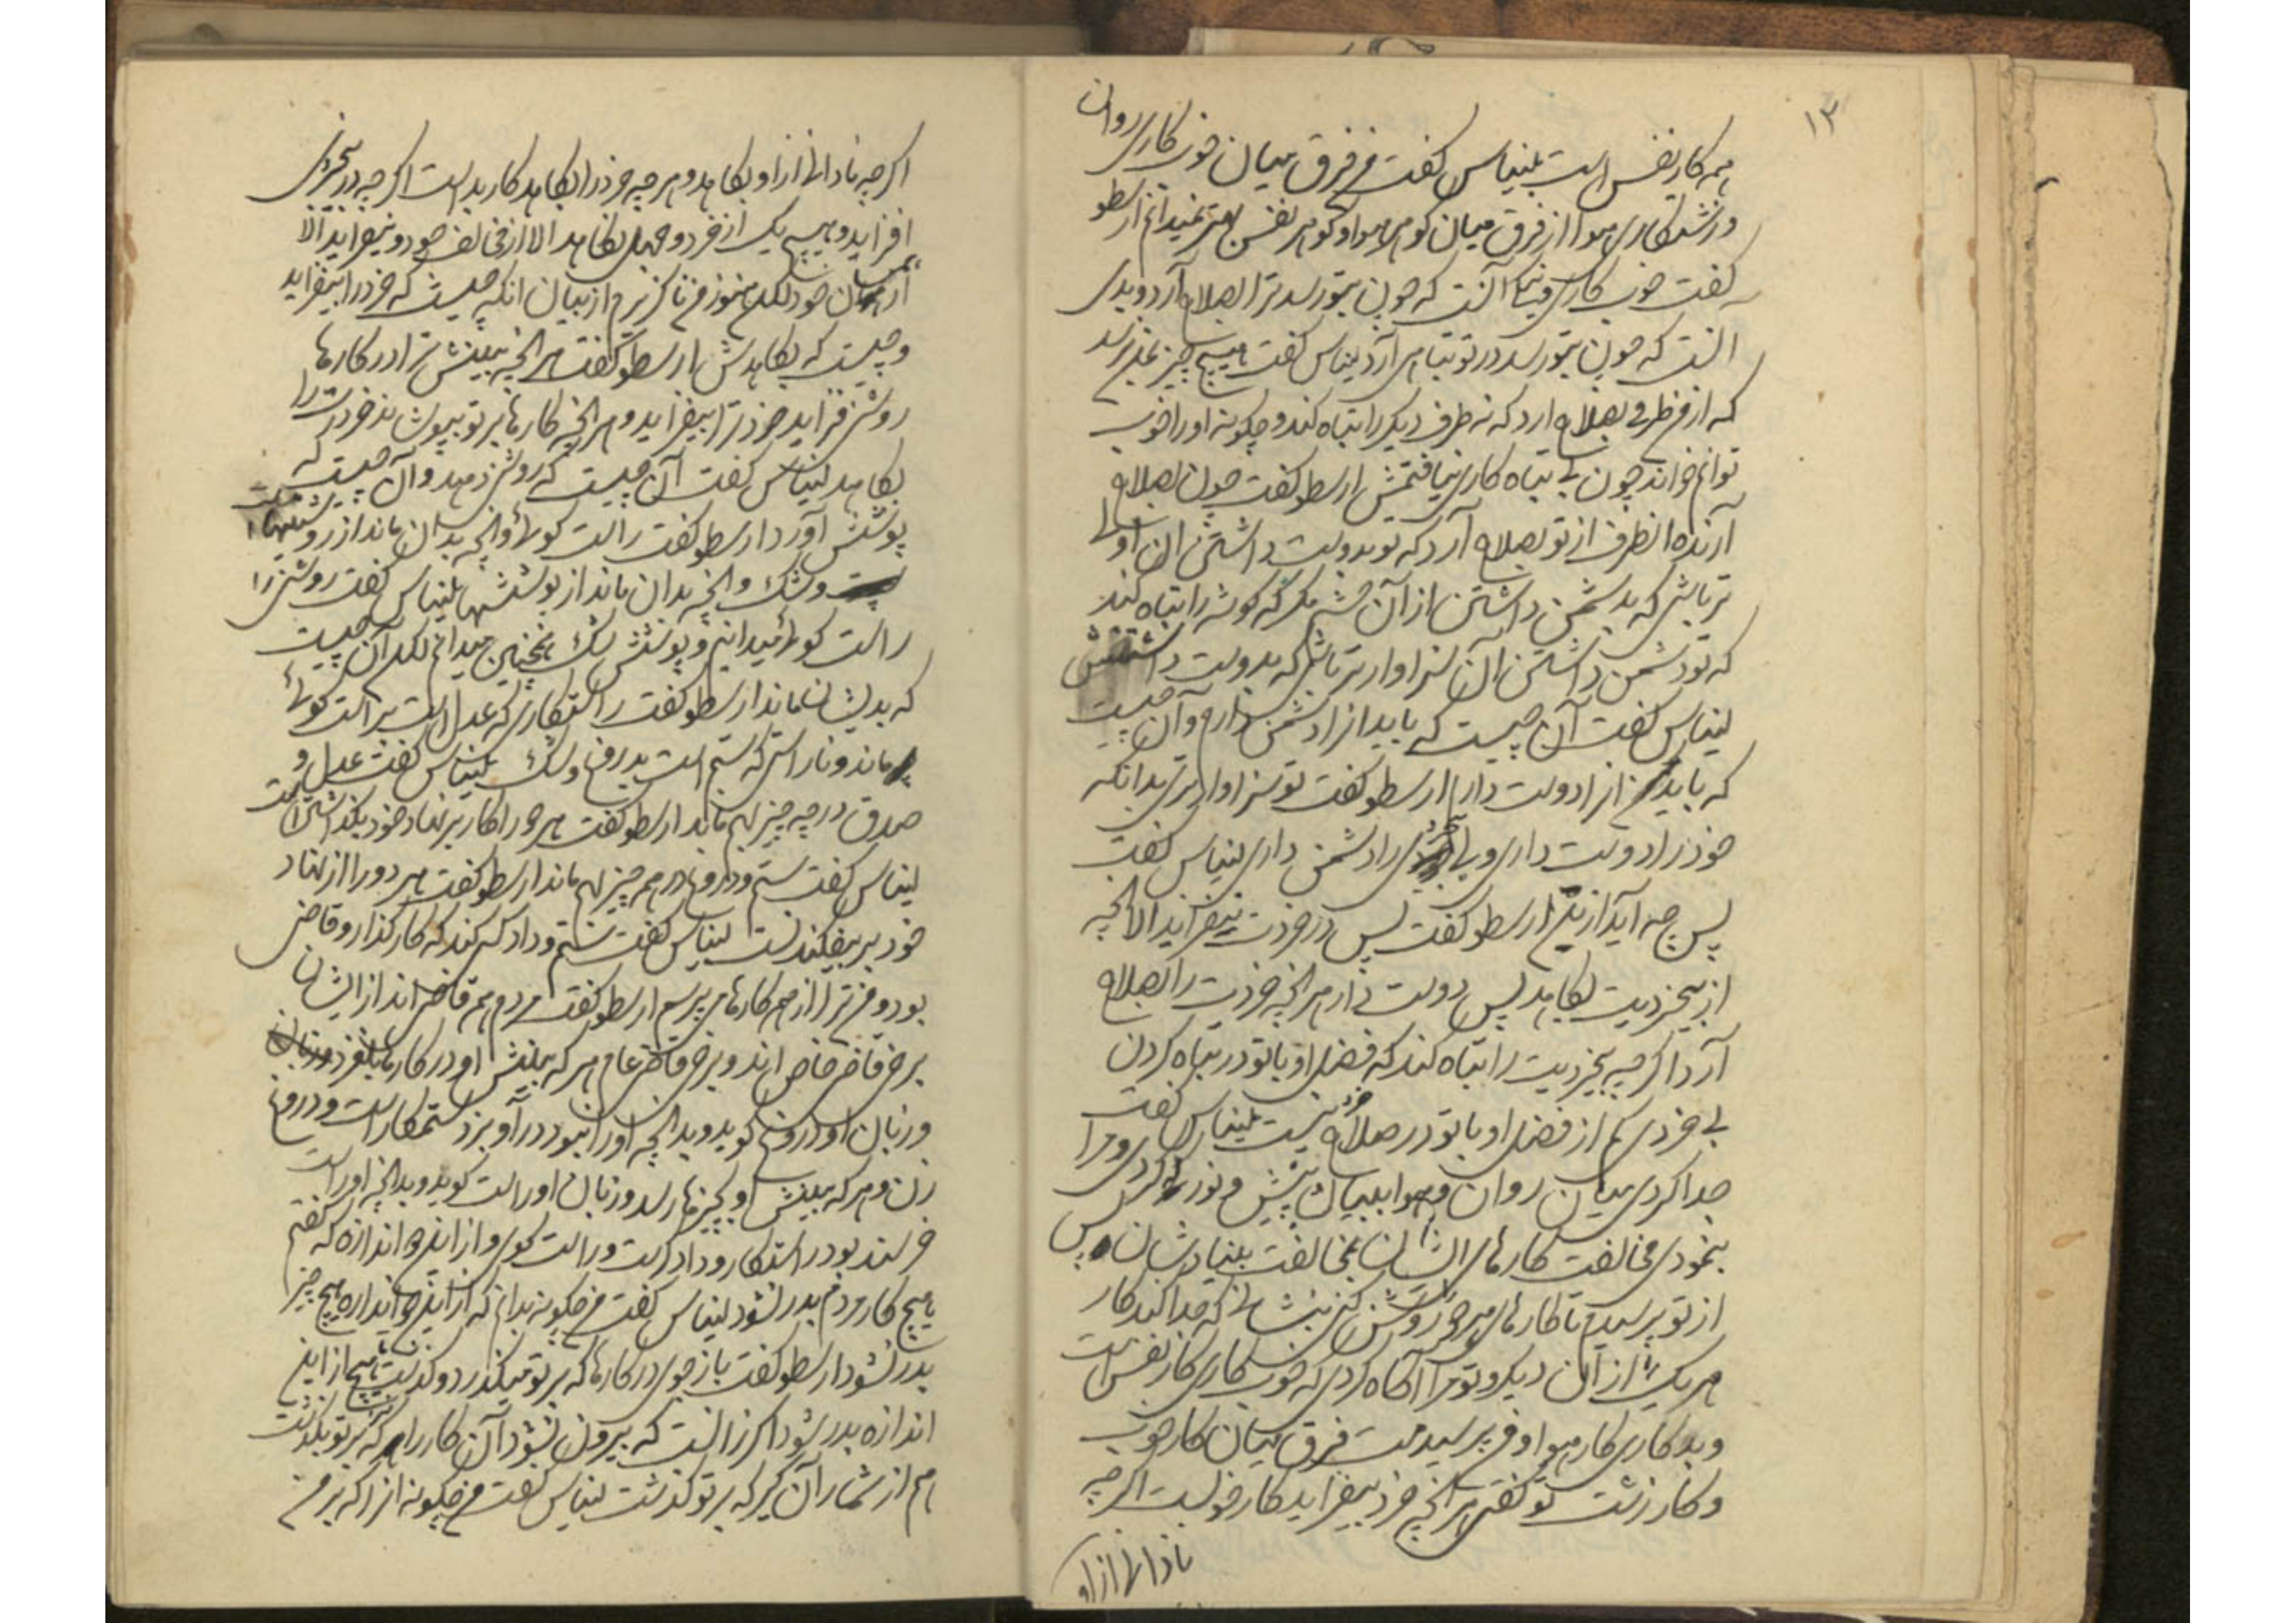 ۱۳
همه کار نفس است بلیناس گفت فرق میان خوب کاری روان
و زشتکاری هوا از فرق میان گوهر هوا و گوهر نفس نمیدانم ارسطو
گفت خوب کاری آنست که چون بتو رسد ترا بصلاح آرد و بدی
آنست که چون بتو رسد در تو تباهی آرد لیناس گفت هیچ چیز بمن نرسد
که از من طرفی بصلاح ارد که نه طرف دیکر را تباه کند و چکونه او را خوب
توانم خواند چون بی تباه کاری نیافتمش ارسطو گفت چون بصلاح
آرنده انطرف از تو بصلاح آرد که تو بدوست داشتن ان اولی
تر باشی که بدشمن داشتن از آن خشم مکر که کوشه را تباه کند
که تو دشمن داشتن آن سزاوارتر باشی که بدوست داشتنش
لیناس گفت آن چیست که باید انرا دشمن دارم و آن چیست
که باید انرا دوست دارم ارسطو گفت تو سزاوارتری بدانکه
خرد را دوست داری و بی خردی را دشمن داری لیناس گفت
پس چه آید ازین ارسطو گفت پس در خردت نیفزاید الا آنچه
از بیخردیت بکاهد پس دوست دار هر آنچه خردت را بصلاح
آرد اگر چه بیخردیت را تباه کند که فضل او با تو در تباه کردن
بی خردی کم از فضل او با تو در صلاح خرد نیست بلیناس گفت
جدا کردی میان روان و هوا ببیان پیش و نور کردی و مرا
بنمودی مخالفت کارهای ایشان بمخالفت بنیادشان پس
از تو پرسیدم تا کارهای هر دو روشن کنی بنشانی که جدا کند کار
هر یک را از آن دیکر و تو مرا آکاه کردی که خوب کاری کار نفس است
و بد کاری کار هوا و من پرسیدمت فرق میان کار خوب
و کار زشت تو گفتی هر آنچه خرد بیفزاید کار خوبست اگر چه
نادانی از او
اگر چه نادانی از او بکاهد و هر چه خرد را بکاهد کار بد است اگر چه در بیخردی
افزاید و هیچ یک از خرد و جهل نکاهد الا از مخالف خود و نیفزاید الا
از همسان خود لکن هنوز من ناگزیرم از بیان آنکه چیست که خرد را بیفزاید
و چیست که بکاهدش ارسطو گفت هر آنچه بینش ترا در کارها
روشنی فزاید خرد ترا بیفزاید و هر آنچه کارها بر تو بپوشاند خردت را
بکاهد لیناس گفت آن چیست که روشنی دهد و آن چیست که
پوشش آورد ارسطو گفت راست گوئی و آنچه بدان ماند از روشنیها است
و شک و آنچه بدان ماند از پوششها لیناس گفت روشنی را
راست گوئی میدانم و پوشش شک همچنین میدانم لکن آن چیست
که بدیشان ماند ارسطو گفت راستکاری که عدل است براست گوئی
ماند و ناراستی که ستم است بدروغ و شک لیناس گفت عدل و
صدق در چه چیز بهم مانند ارسطو گفت هر دو را کار بر نهاد خود بگذاشتن است
لیناس گفت ستم و دروغ در چه چیز بهم مانند ارسطو گفت هر دو را از نهاد
خود بر بیفکندنست لیناس گفت ستم و داد کسی کند که کارگذار و قاضی
بود و من ترا از همه کارها می پرسم ارسطو گفت مردم همه قاضی اند از ایشان
برخی قاضی خاص اند و برخی قاضی عام هر که بینش او در کارها بلغزد
و زبان او دروغ گوید و بدانچه او را نبود در آویزد ستمکار است و دروغ
زن و هر که بینش او بچیزها رسد و زبان او راست گوید و بدانچه اوراست
خرسند بود راستکار و دادگر است و راست گوی و از این دو اندازه که گفتم
هیچ کار مردم بدر نشود لیناس گفت من چکونه بدانم که از این دو اندازه هیچ چیز
بدر نشود ارسطو گفت باز جوی در کارها که بر تو میگذرد و گذشت تا هیچ از این
اندازه بدر شود اگر نه آنست که بیرون نشود آن کار را که بر تو نگذشت
هم از شمار آن گیر که بر تو گذشت لیناس گفت من چکونه انرا که بر من